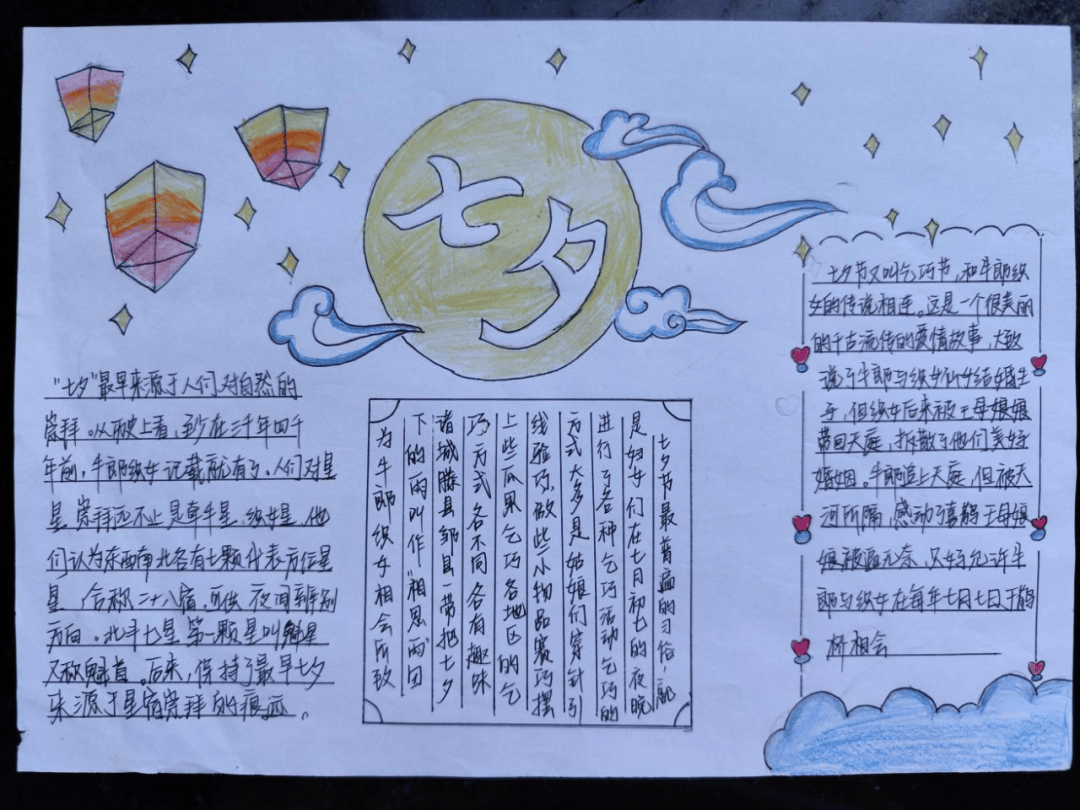 七夕
"七夕"最早来源于人们对自然的
崇拜。从历史上看,至少在三千年四千
年前,牛郎织女记载就有了。人们对星
星崇拜远不止是牵牛星、织女星,他
们认为东西南北各有七颗代表方位星
星,合称二十八宿,可供夜间辨别
方向。北斗七星第一颗星叫魁星
又称魁首。后来,保持了最早七夕
来源于星宿崇拜的痕迹。
七夕节最普遍的习俗,就
是妇女们在七月初七的夜晚
进行了各种乞巧活动乞巧的
方式大多是姑娘们穿针引
线验巧,做些小物品赛巧摆
上些瓜果乞巧各地区的乞
巧方式各不同各有趣味
诸城滕县邹县一带把七夕
下的雨叫作"相思雨"因
为牛郎织女相会所致
七夕节又叫乞巧节,和牛郎织
女的传说相连。这是一个很美丽
的千古流传的爱情故事,大致
说了牛郎与织女仙女结婚生
子,但织女后来被王母娘娘
带回天庭,拆散了他们美好
婚姻。牛郎追上天庭,但被天
河所隔,感动了喜鹊王母娘
娘被逼无奈,只好允许牛
郎与织女在每年七月七日于鹊
桥相会